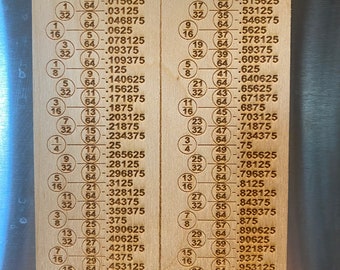 .015625
1/32 .03125
3/64 .046875
1/16 .0625
5/64 .078125
3/32 .09375
7/64 .109375
1/8 .125
9/64 .140625
5/32 .15625
11/64 .171875
3/16 .1875
13/64 .203125
7/32 .21875
15/64 .234375
1/4 .25
17/64 .265625
9/32 .28125
19/64 .296875
5/16 .3125
21/64 .328125
11/32 .34375
23/64 .359375
3/8 .375
25/64 .390625
13/32 .40625
27/64 .421875
7/16 .4375
29/64 .453125
.515625
17/32 .53125
35/64 .546875
9/16 .5625
37/64 .578125
19/32 .59375
39/64 .609375
5/8 .625
41/64 .640625
21/32 .65625
43/64 .671875
11/16 .6875
45/64 .703125
23/32 .71875
47/64 .734375
3/4 .75
49/64 .765625
25/32 .78125
51/64 .796875
13/16 .8125
53/64 .828125
27/32 .84375
55/64 .859375
7/8 .875
57/64 .890625
29/32 .90625
59/64 .921875
15/16 .9375
61/64 .953125